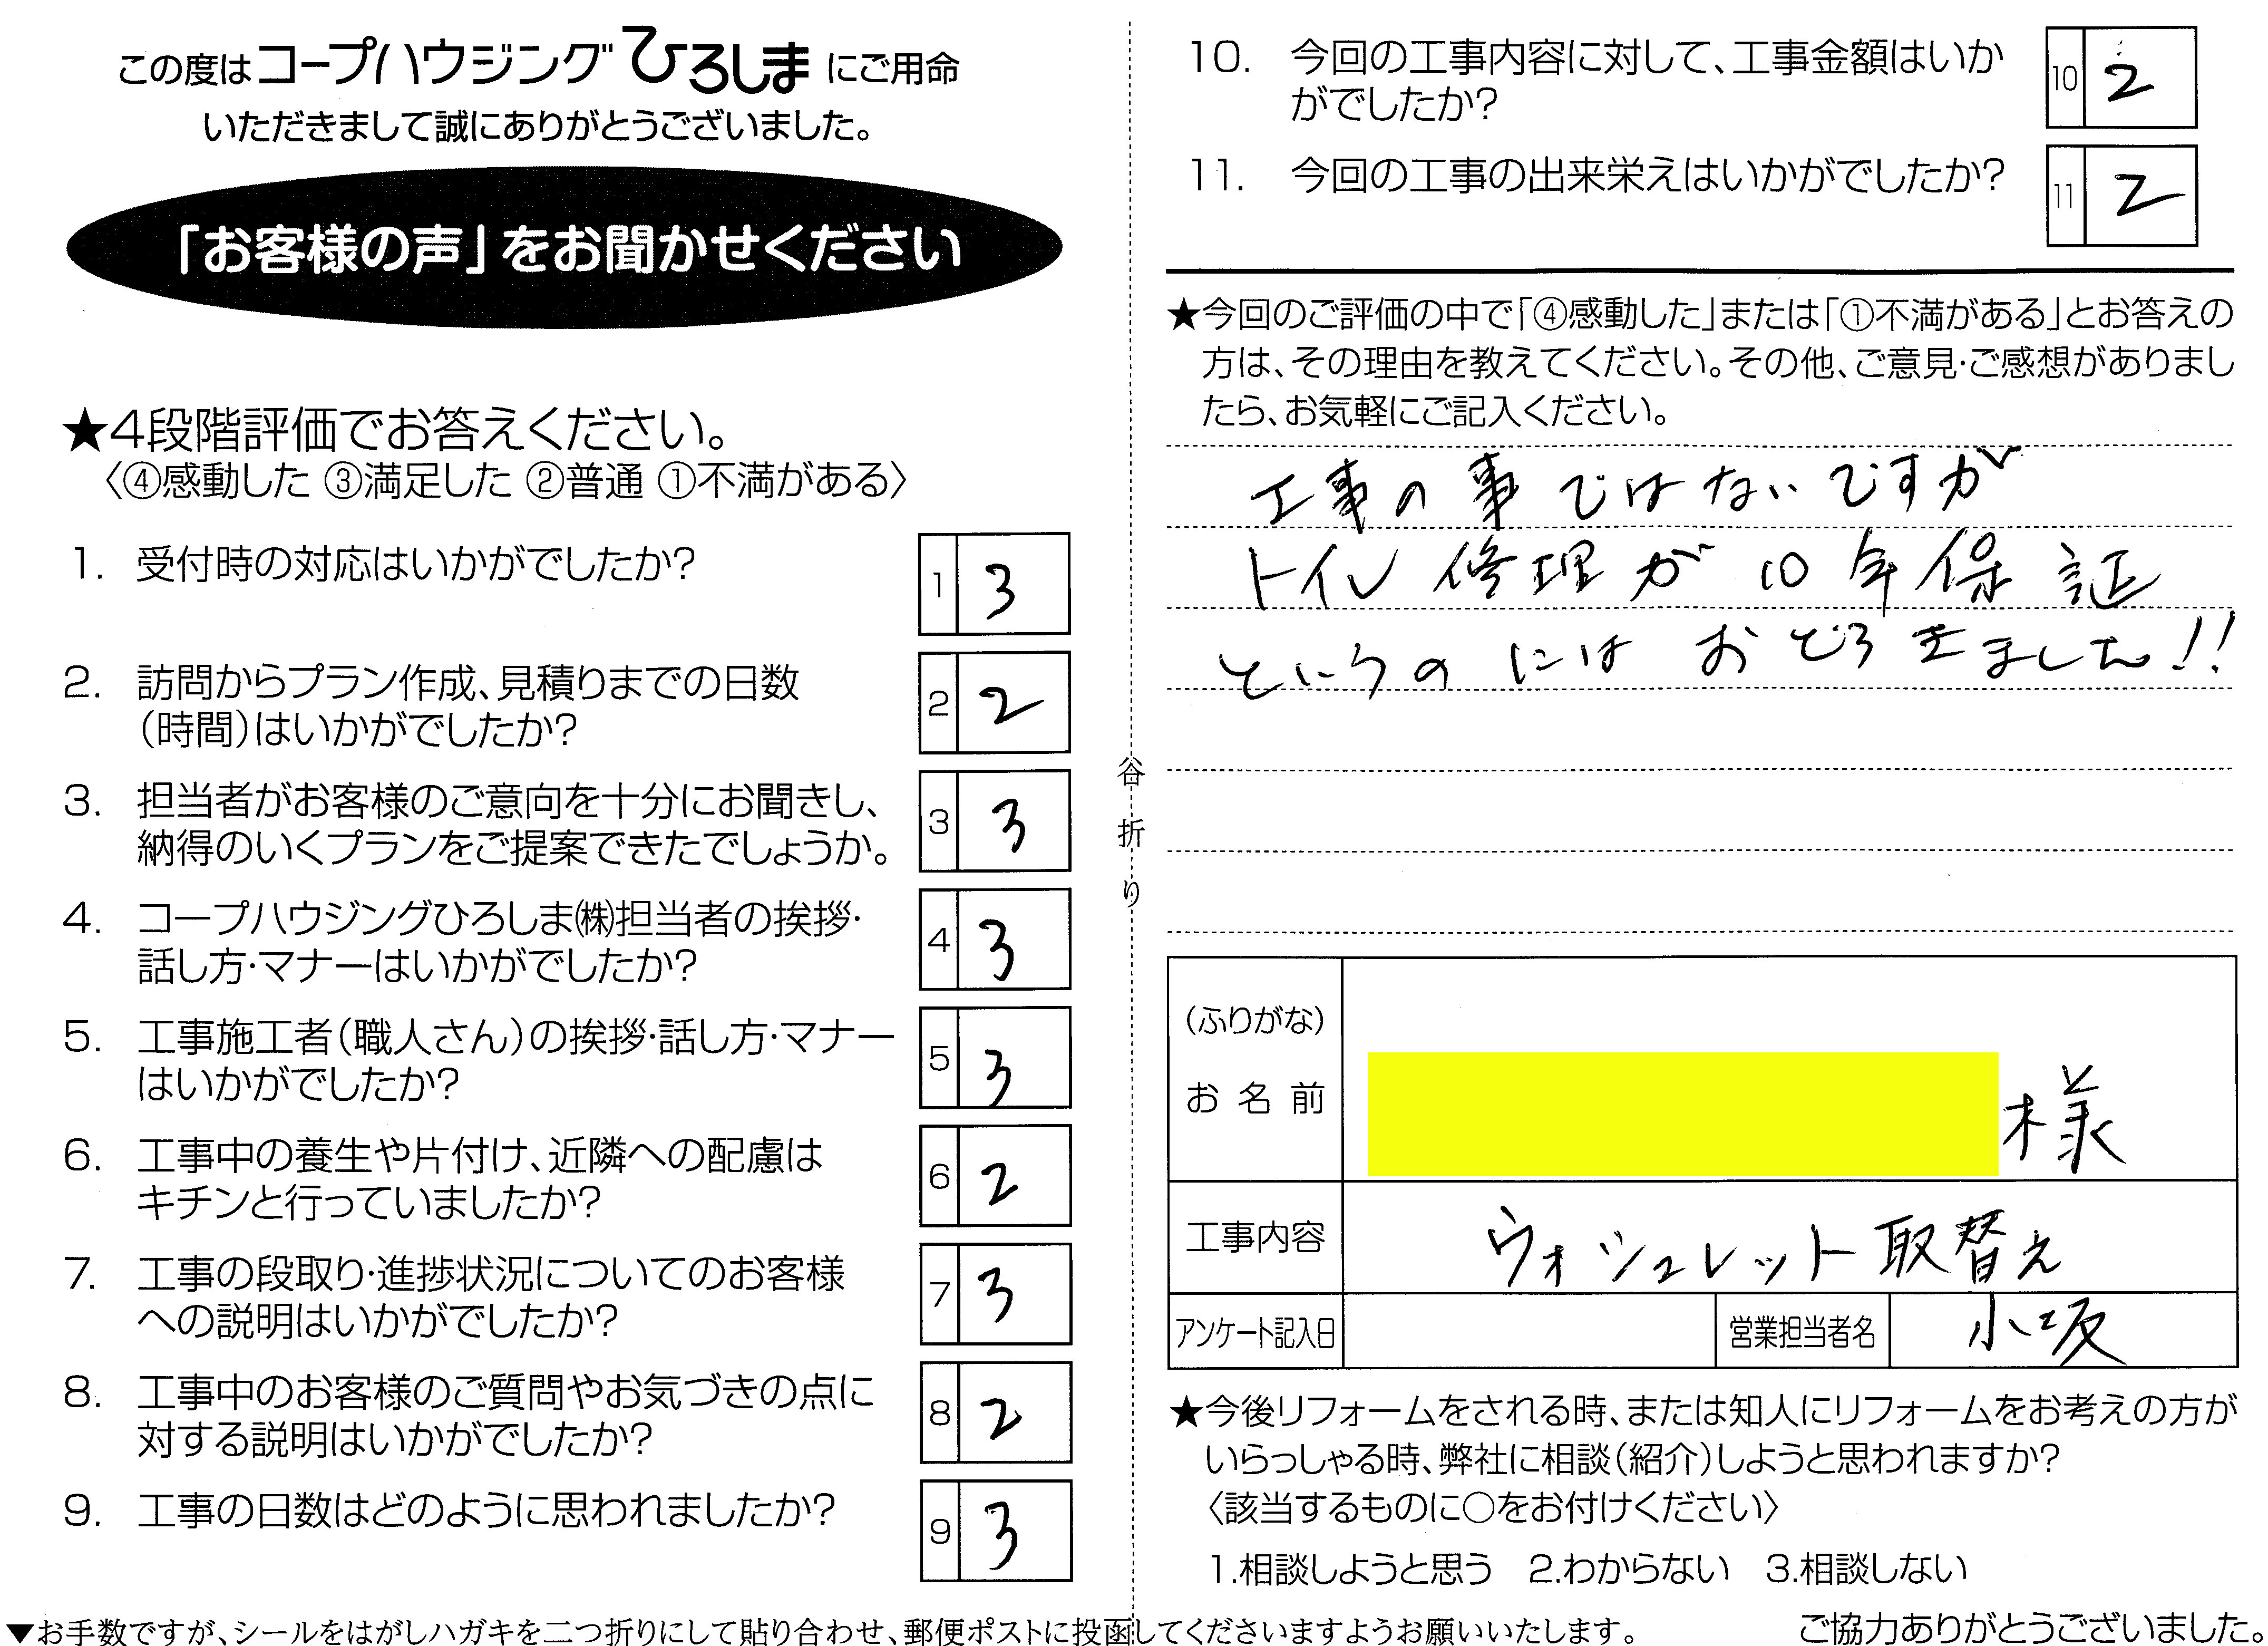 この度はコープハウジングひろしまにご用命
いただきまして誠にありがとうございました。
「お客様の声」をお聞かせください
★4段階評価でお答えください。
〈④感動した ③満足した ②普通 ①不満がある〉
1. 受付時の対応はいかがでしたか? 1 3
2. 訪問からプラン作成、見積りまでの日数
（時間）はいかがでしたか? 2 2
3. 担当者がお客様のご意向を十分にお聞きし、
納得のいくプランをご提案できたでしょうか。 3 3
4. コープハウジングひろしま㈱担当者の挨拶・
話し方・マナーはいかがでしたか? 4 3
5. 工事施工者（職人さん）の挨拶・話し方・マナー
はいかがでしたか? 5 3
6. 工事中の養生や片付け、近隣への配慮は
キチンと行っていましたか? 6 2
7. 工事の段取り・進捗状況についてのお客様
への説明はいかがでしたか? 7 3
8. 工事中のお客様のご質問やお気づきの点に
対する説明はいかがでしたか? 8 2
9. 工事の日数はどのように思われましたか? 9 3
谷折り
10. 今回の工事内容に対して、工事金額はいか
がでしたか? 10 2
11. 今回の工事の出来栄えはいかがでしたか? 11 2
★今回のご評価の中で「④感動した」または「①不満がある」とお答えの
方は、その理由を教えてください。その他、ご意見・ご感想がありまし
たら、お気軽にご記入ください。
工事の事ではないですが
トイレ修理が10年保証
というのにはおどろきました!!
（ふりがな）
お名前 様
工事内容 ウォシュレット取替え
アンケート記入日 営業担当者名 小坂
★今後リフォームをされる時、または知人にリフォームをお考えの方が
いらっしゃる時、弊社に相談（紹介）しようと思われますか?
〈該当するものに○をお付けください〉
1.相談しようと思う 2.わからない 3.相談しない
▼お手数ですが、シールをはがしハガキを二つ折りにして貼り合わせ、郵便ポストに投函してくださいますようお願いいたします。
ご協力ありがとうございました。